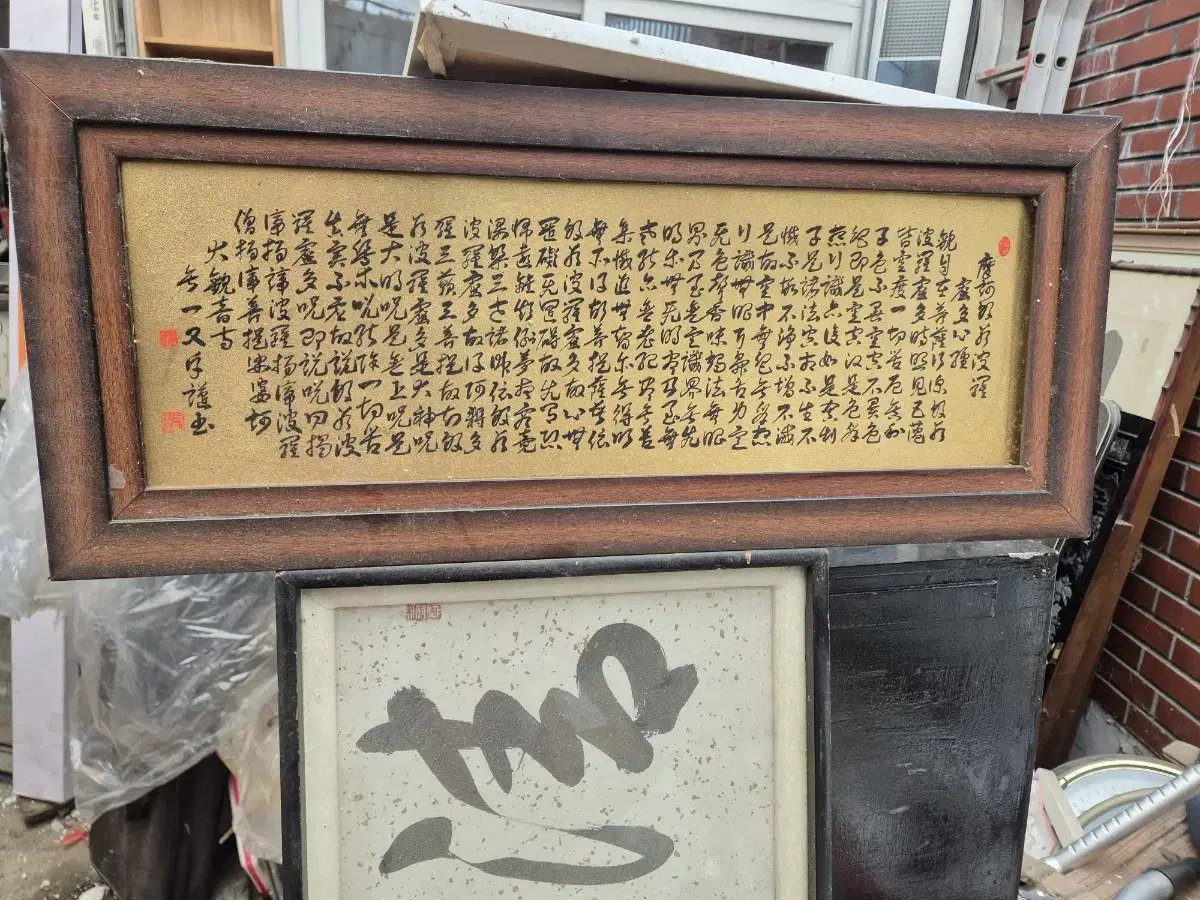 摩訶般若波羅
蜜多心經
觀自在菩薩行深般若
波羅蜜多時照見五蘊
皆空度一切苦厄舍利
子色不異空空不異色
色即是空空即是色受
想行識亦復如是舍利
子是諸法空相不生不
滅不垢不淨不增不減
是故空中無色無受想
行識無眼耳鼻舌身意
無色聲香味觸法無眼
界乃至無意識界無無
明亦無無明盡乃至無
老死亦無老死盡無苦
集滅道無智亦無得以
無所得故菩提薩埵依
般若波羅蜜多故心無
罣礙無罣礙故無有恐
怖遠離顚倒夢想究竟
涅槃三世諸佛依般若
波羅蜜多故得阿耨多
羅三藐三菩提故知般
若波羅蜜多是大神呪
是大明呪是無上呪是
無等等呪能除一切苦
眞實不虛故說般若波
羅蜜多呪即說呪曰揭
諦揭諦波羅揭諦波羅
僧揭諦菩提娑婆訶
大觀音寺
謹書